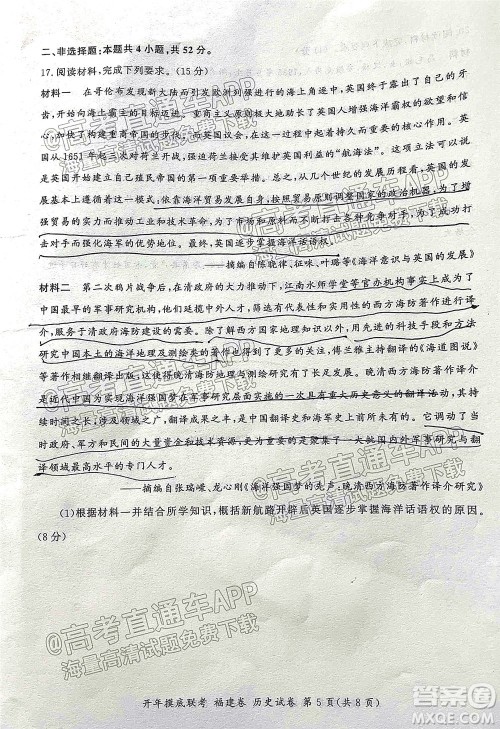 二、非选择题:本题共4小题,共52分。
17.阅读材料,完成下列要求。(15分)
材料一 在哥伦布发现新大陆而引发欧洲列强的海上角逐中,英国终于露出了自己的牙
齿,开始向海上霸主的目标迈进。重商主义原则鼓动了英国人增强海洋霸权的欲望和信
念,加快了构建重商帝国的步伐,
国从1651年起三次对荷兰开战,强迫荷兰接受维护英国利益的“航海法”。可以这么说,这
是英国开始建立殖民帝国的一项重要措施。总之,从几个世纪的发展历程看,英国
基本上是遵循着这样一条道路:依靠海洋贸易,按照贸易原则调整国家的政治机器,为了增
强贸易的实力而推动工业和技术革命,为了扩大和保持贸易的
对手而强化海军的优势地位。英国逐步掌握海洋话语权。
——摘编自陈晓律、征咏、叶璐等《海洋意识与英国的发展》
材料二 第二次鸦片战争后,在清政府的大力推动下,江南水师学堂等官办机构事实上成为了
中国最早的军事研究机构,他们延揽中外人才,筛选有代表性和实用性的西方海防著作进行译
介,服务于清政府海防建设的需要。除了解西方国家地理知识以外,用先进的科技手段和方法
研究中国本土的海洋地理及测绘类的著作也日益增多,傅兰雅主持翻译的《海道图说》
等著作相继翻译出版,这使得晚清海防地理与测绘研究有了长足发展。晚清西方海防著作译介
是近代中国为实现海洋强国梦在军事研究层面的一次具有重大历史意义的翻译活动,
涉及领域广,翻译成果之丰,是中国翻译史和海军史上前所未有的。它调动了当
时政府、军方和民间的大量资金和技术资源,更重要的是聚集了一大批国内外军事研究与翻
译领域最高水平的专门人才。
——摘编自张瑞嵘、龙心刚《海洋强国梦的先声:晚清西方海防著作译介研究》
(1)根据材料一并结合所学知识,概括新航路开辟后英国逐步掌握海洋话语权的原因。
(8分)
@高考直通车APP
海量高清试题免费下载
开年摸底联考 福建卷 历史试卷 第5页(共8页)
作业帮